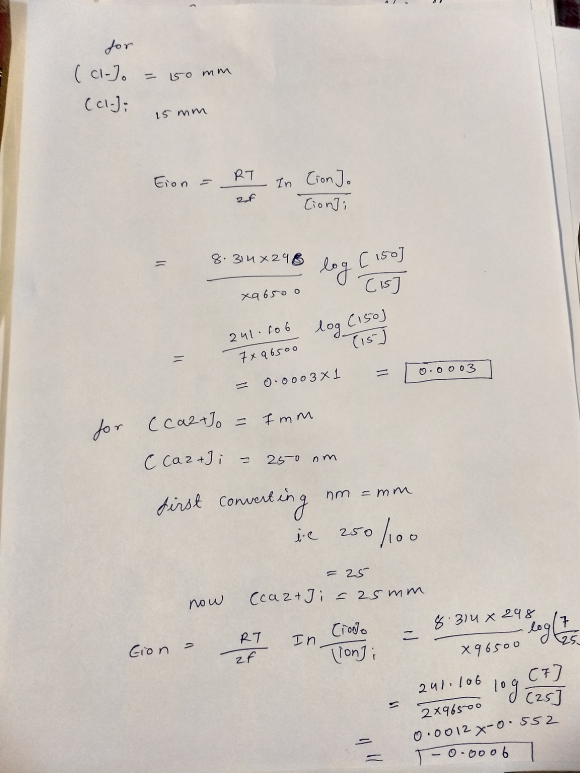 for
(Cl-]o = 150 mm
(Cl-]i 15 mm
Eion = RT/zf In [ion]o/[ion]i
= 8.314×298/×96500 log [150]/[15]
= 241.106/7×96500 log [150]/[15]
= 0.0003×1 = 0.0003
for (Ca2+]o = 7mm
(Ca2+]i = 250 nm
first converting nm = mm
i.e 250/100
= 25
now (Ca2+]i = 25 mm
Eion = RT/zf In [ion]o/[ion]i = 8.314 × 298/×96500 log(7/25
= 241.106/2×96500 log [7]/[25]
= 0.0012×-0.552
= -0.0006